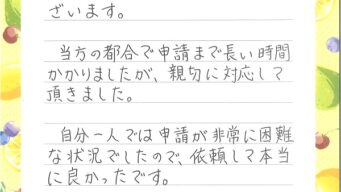 ざいます。
当方の都合で申請まで長い時間
かかりましたが、親切に対応して
頂きました。
自分一人では申請が非常に困難
な状況でしたので、依頼して本当
に良かったです。